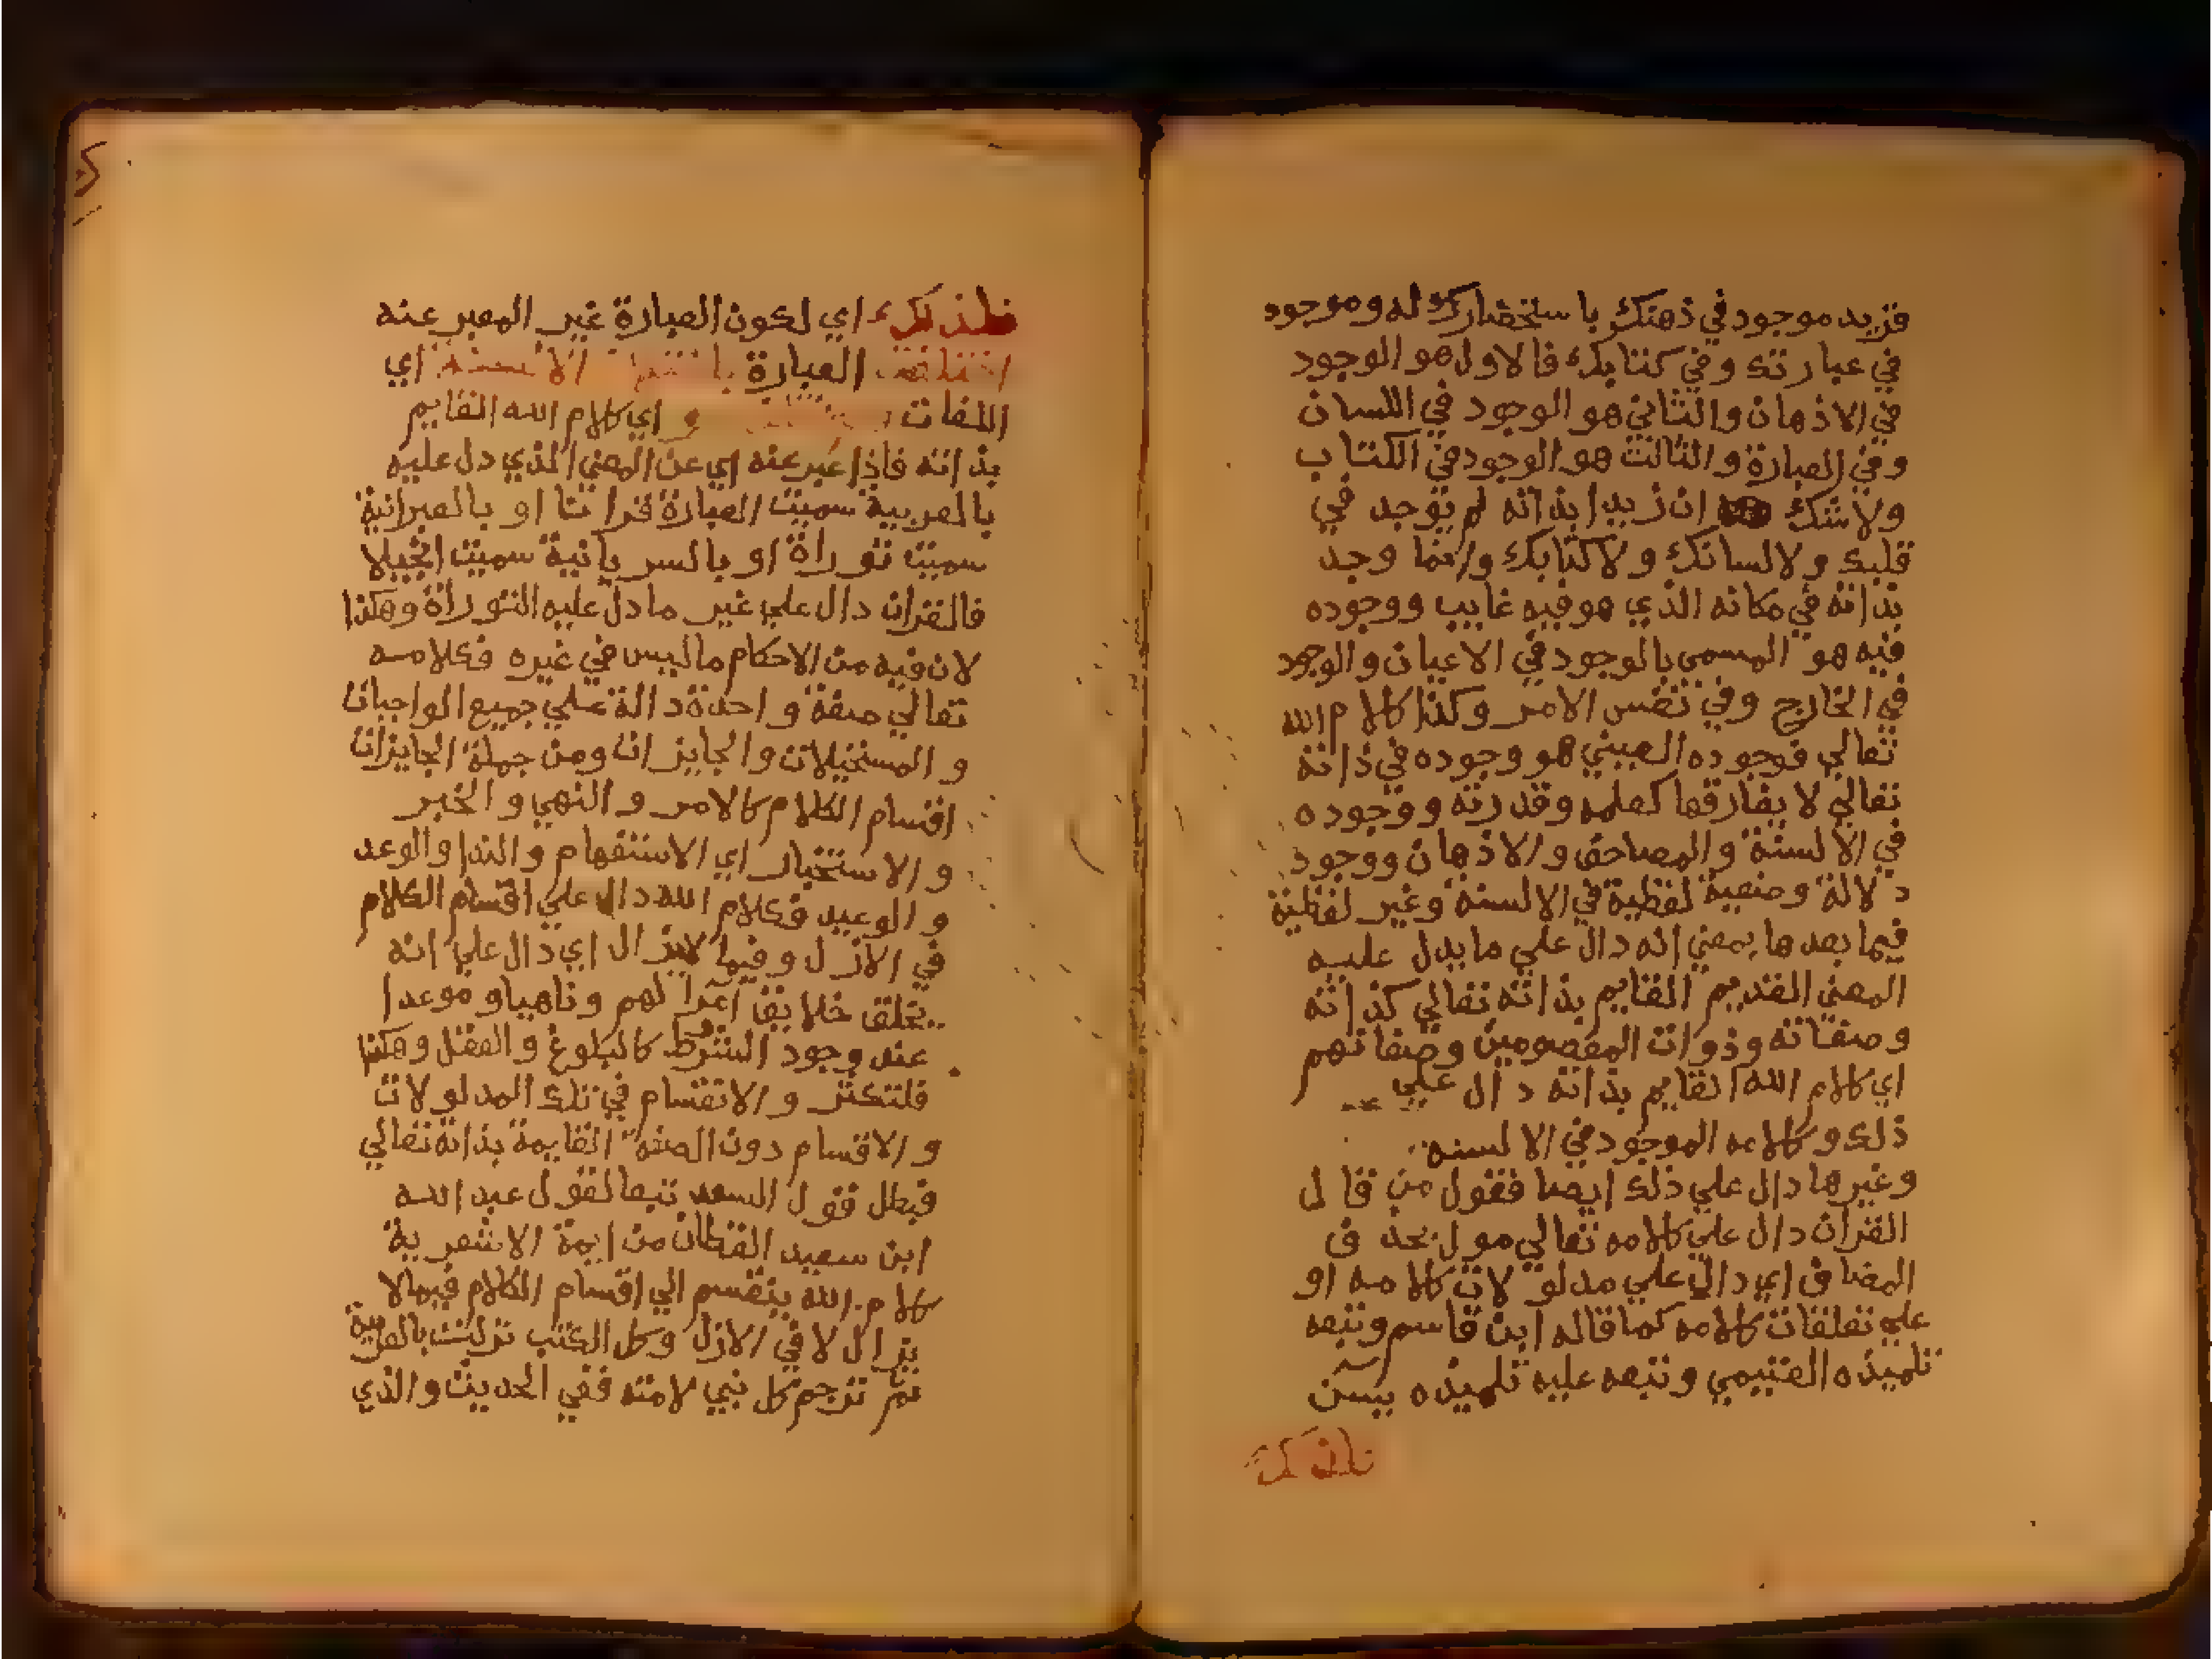 فزيد موجود في ذهنك باستحضارك له وموجود
في عبارتك وفي كتابك فالاول هو الوجود
في الاذهان والثاني هو الوجود في اللسان
وفي العبارة والثالث هو الوجود في الكتاب
ولا شك ان زيدا بذاته لم توجد في
قلبك ولا لسانك ولا كتابك وانما وجد
بذاته في مكانه الذي هو فيه غايب ووجوده
فيه هو المسمى بالوجود في الاعيان والوجود
في الخارج وفي نفس الامر وكذا كلام الله
تعالي فوجوده العيني هو وجوده في ذاته
تعالي لا يفارقها كعلمه وقدرته ووجوده
في الالسنة والمصاحف والاذهان ووجود
دلالة وضعية لفظية في الالسنة وغير لفظية
فيما بعدها بمعني انه دال علي ما يدل عليه
المعني القديم القايم بذاته تعالي كذاته
وصفاته وذوات المعصومين وصفاتهم
اي كلام الله القايم بذاته دال علي
ذلك وكلامه الموجود في الالسنه
وغيرها دال علي ذلك ايضا فقول من قال
القران دال علي كلامه تعالي مول بحذف
المضاف اي دال علي مدلولات كلامه او
علي تعلقات كلامه كما قاله ابن قاسم وتبعه
تلميذه الغنيمي وتبعه عليه تلميذه يسن
فلذلك
فلذلك اي لكون العبارة غير المعبر عنه
اختلفت العبارة الالسنة اي
اللغات و اي كلام الله القايم
بذاته فاذا عبر عنه اي عن المعني الذي دل عليه
بالعربية سميت العبارة قرانا او بالعبرانية
سميت توراة او بالسريانية سميت انجيلا
فالقران دال علي غير ما دل عليه التوراة وهكذا
لان فيه من الاحكام ما ليس في غيره فكلامه
تعالي صفة واحدة دالة علي جميع الواجبات
والمستحيلات والجايزات ومن جملة الجايزات
اقسام الكلام كالامر والنهي والخبر
والاستخبار اي الاستفهام والندا والوعد
والوعيد فكلام الله دال علي اقسام الكلام
في الازل وفيما لايزال اي دال علي انه
يخلق خلايق آمرا لهم وناهيا وموعدا
عند وجود الشرط كالبلوغ والعقل وهكذا
فلتكثر والانقسام في تلك المدلولات
والاقسام دون الصفة القايمة بذاته تعالي
فبطل قول السعد تبعا لقول عبد الله
ابن سعيد القطان من ايمة الاشعرية
كلام الله ينقسم الي اقسام الكلام فيما لا
يزال لا في الازل وكل الكتب نزلت بالعربية
ثم ترجم كل نبي لامته ففي الحديث والذي